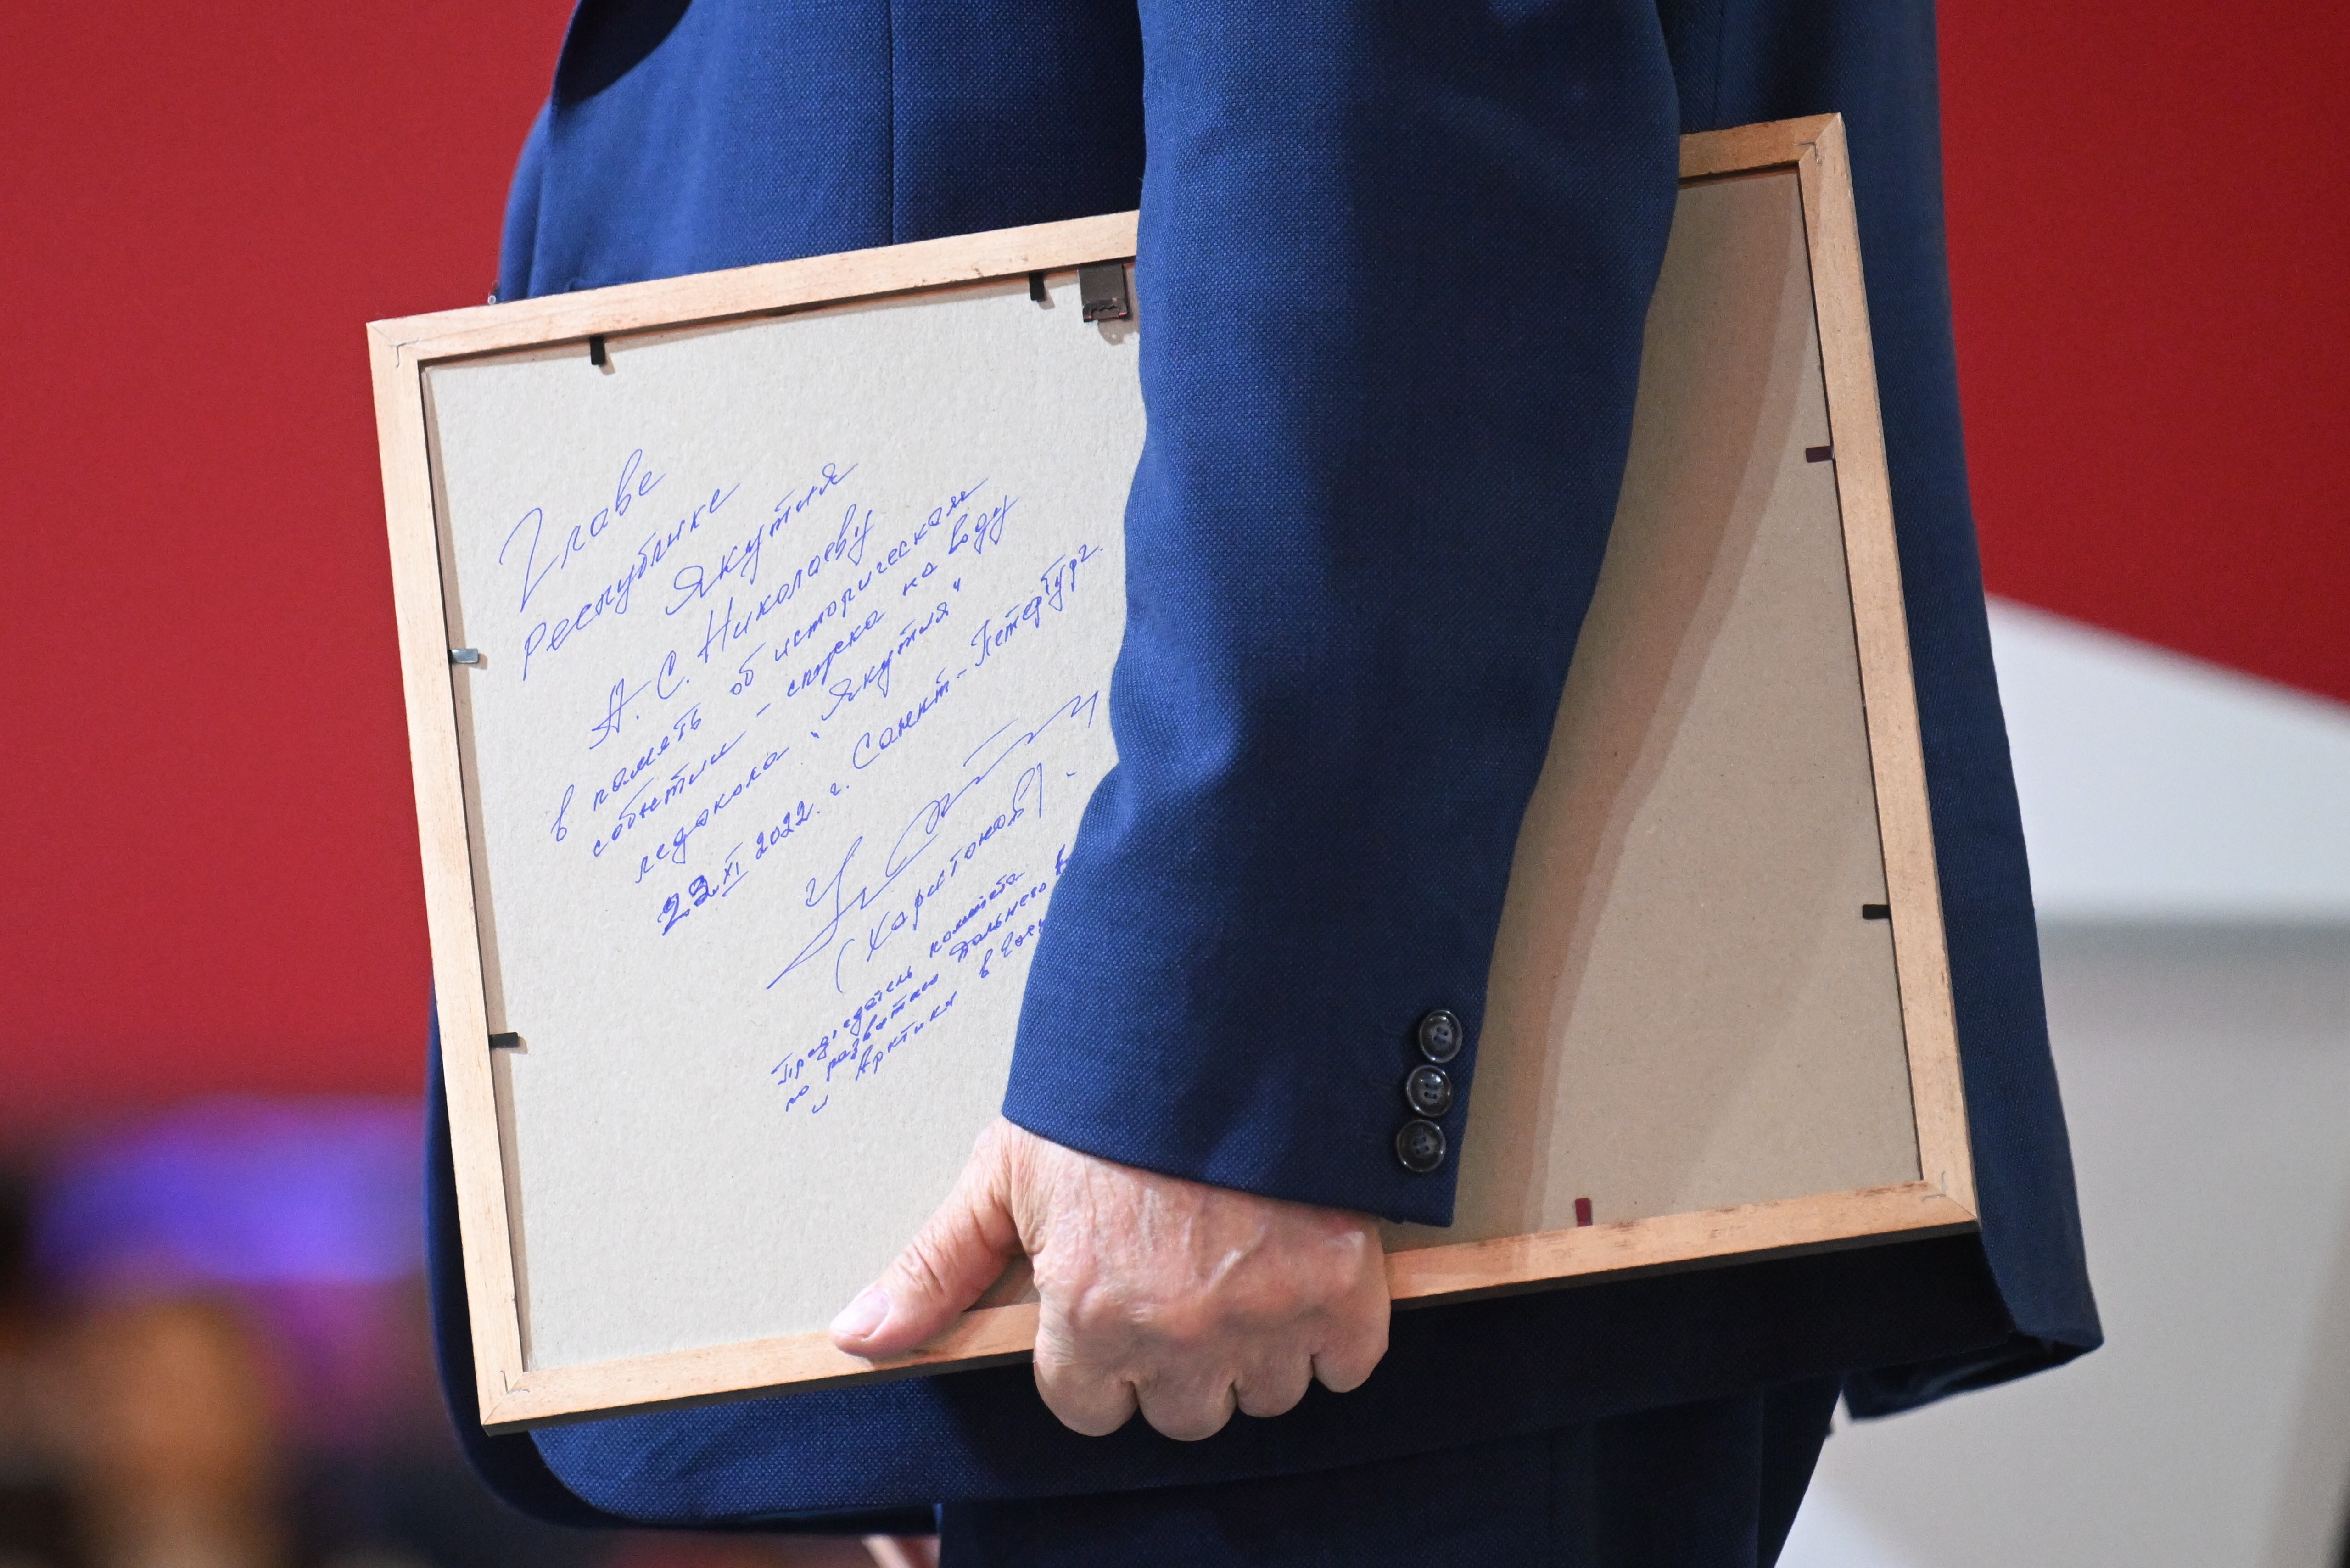 Главе
Республике
Якутия
А. С. Николаеву
в память об историческом
событии - спуска на воду
ледокола "Якутия"
22. XI 2022. г. Санкт-Петербург.
(Харитонов).
Председатель комитета
по развитию Дальнего В
и Арктики в Гос